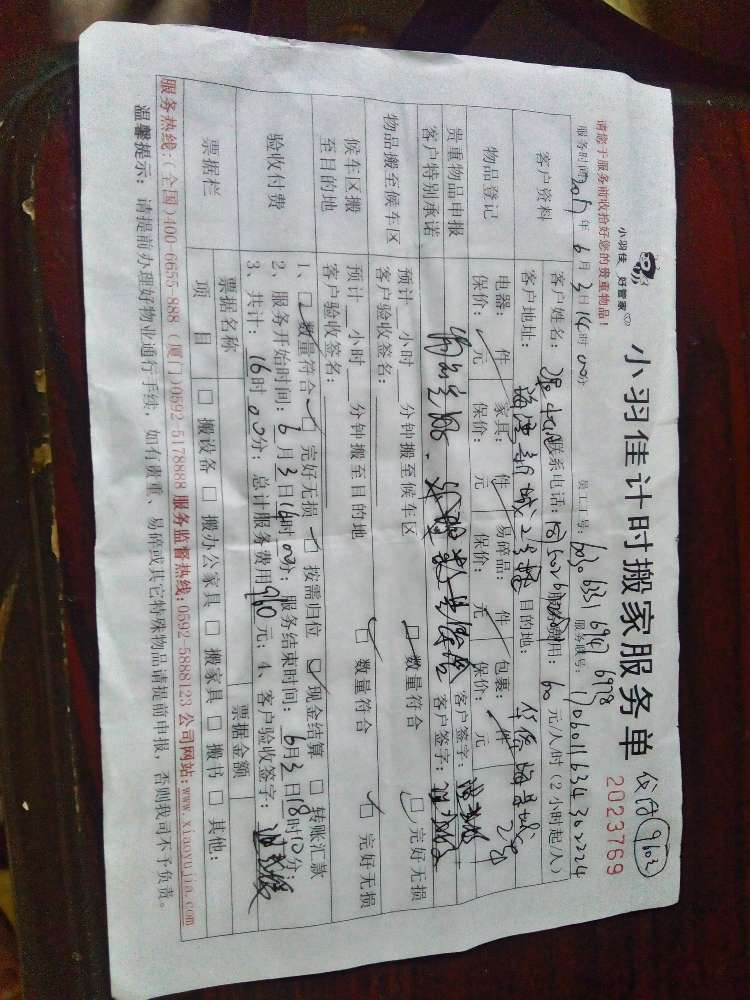 小羽佳 好管家
小羽佳计时搬家服务单
2023769
请您于服务前收拾好您的贵重物品!
服务时间:2017年6月3日14时00分 员工工号: 服务联号:
客户资料
客户姓名: 联系电话: 服务费用:60元/人/时(2小时起/人)
客户地址: 海沧新城 目的地:
物品登记
电器: 件 家具: 件 易碎品: 件 包裹: 件
保价: 元 保价: 元 保价: 元 保价: 元
贵重物品申报 客户签字:
客户特别承诺 客户签字:
物品搬至候车区
预计__小时__分钟搬至候车区 □数量符合 □完好无损
客户验收签名:
候车区搬至目的地
预计__小时__分钟搬至目的地 □数量符合 □完好无损
客户验收签名:
验收付费
1、□数量符合 □完好无损 □按需归位 □现金结算 □转账汇款
2、服务开始时间:6月3日16时00分;服务结束时间:6月3日18时10分;
3、共计:16时00分;总计服务费用960元;4、客户验收签字:
票据栏
票据名称 票据金额
项目 □搬设备 □搬办公家具 □搬家具 □搬书 □其他:
服务热线:(全国)400-6655-888 (厦门)0592-5178888 服务监督热线:0592-5888123 公司网站:www.xiaoyujia.com
温馨提示: 请提前办理好物业通行手续,如有贵重、易碎或其它特殊物品请提前申报,否则我司不予负责。